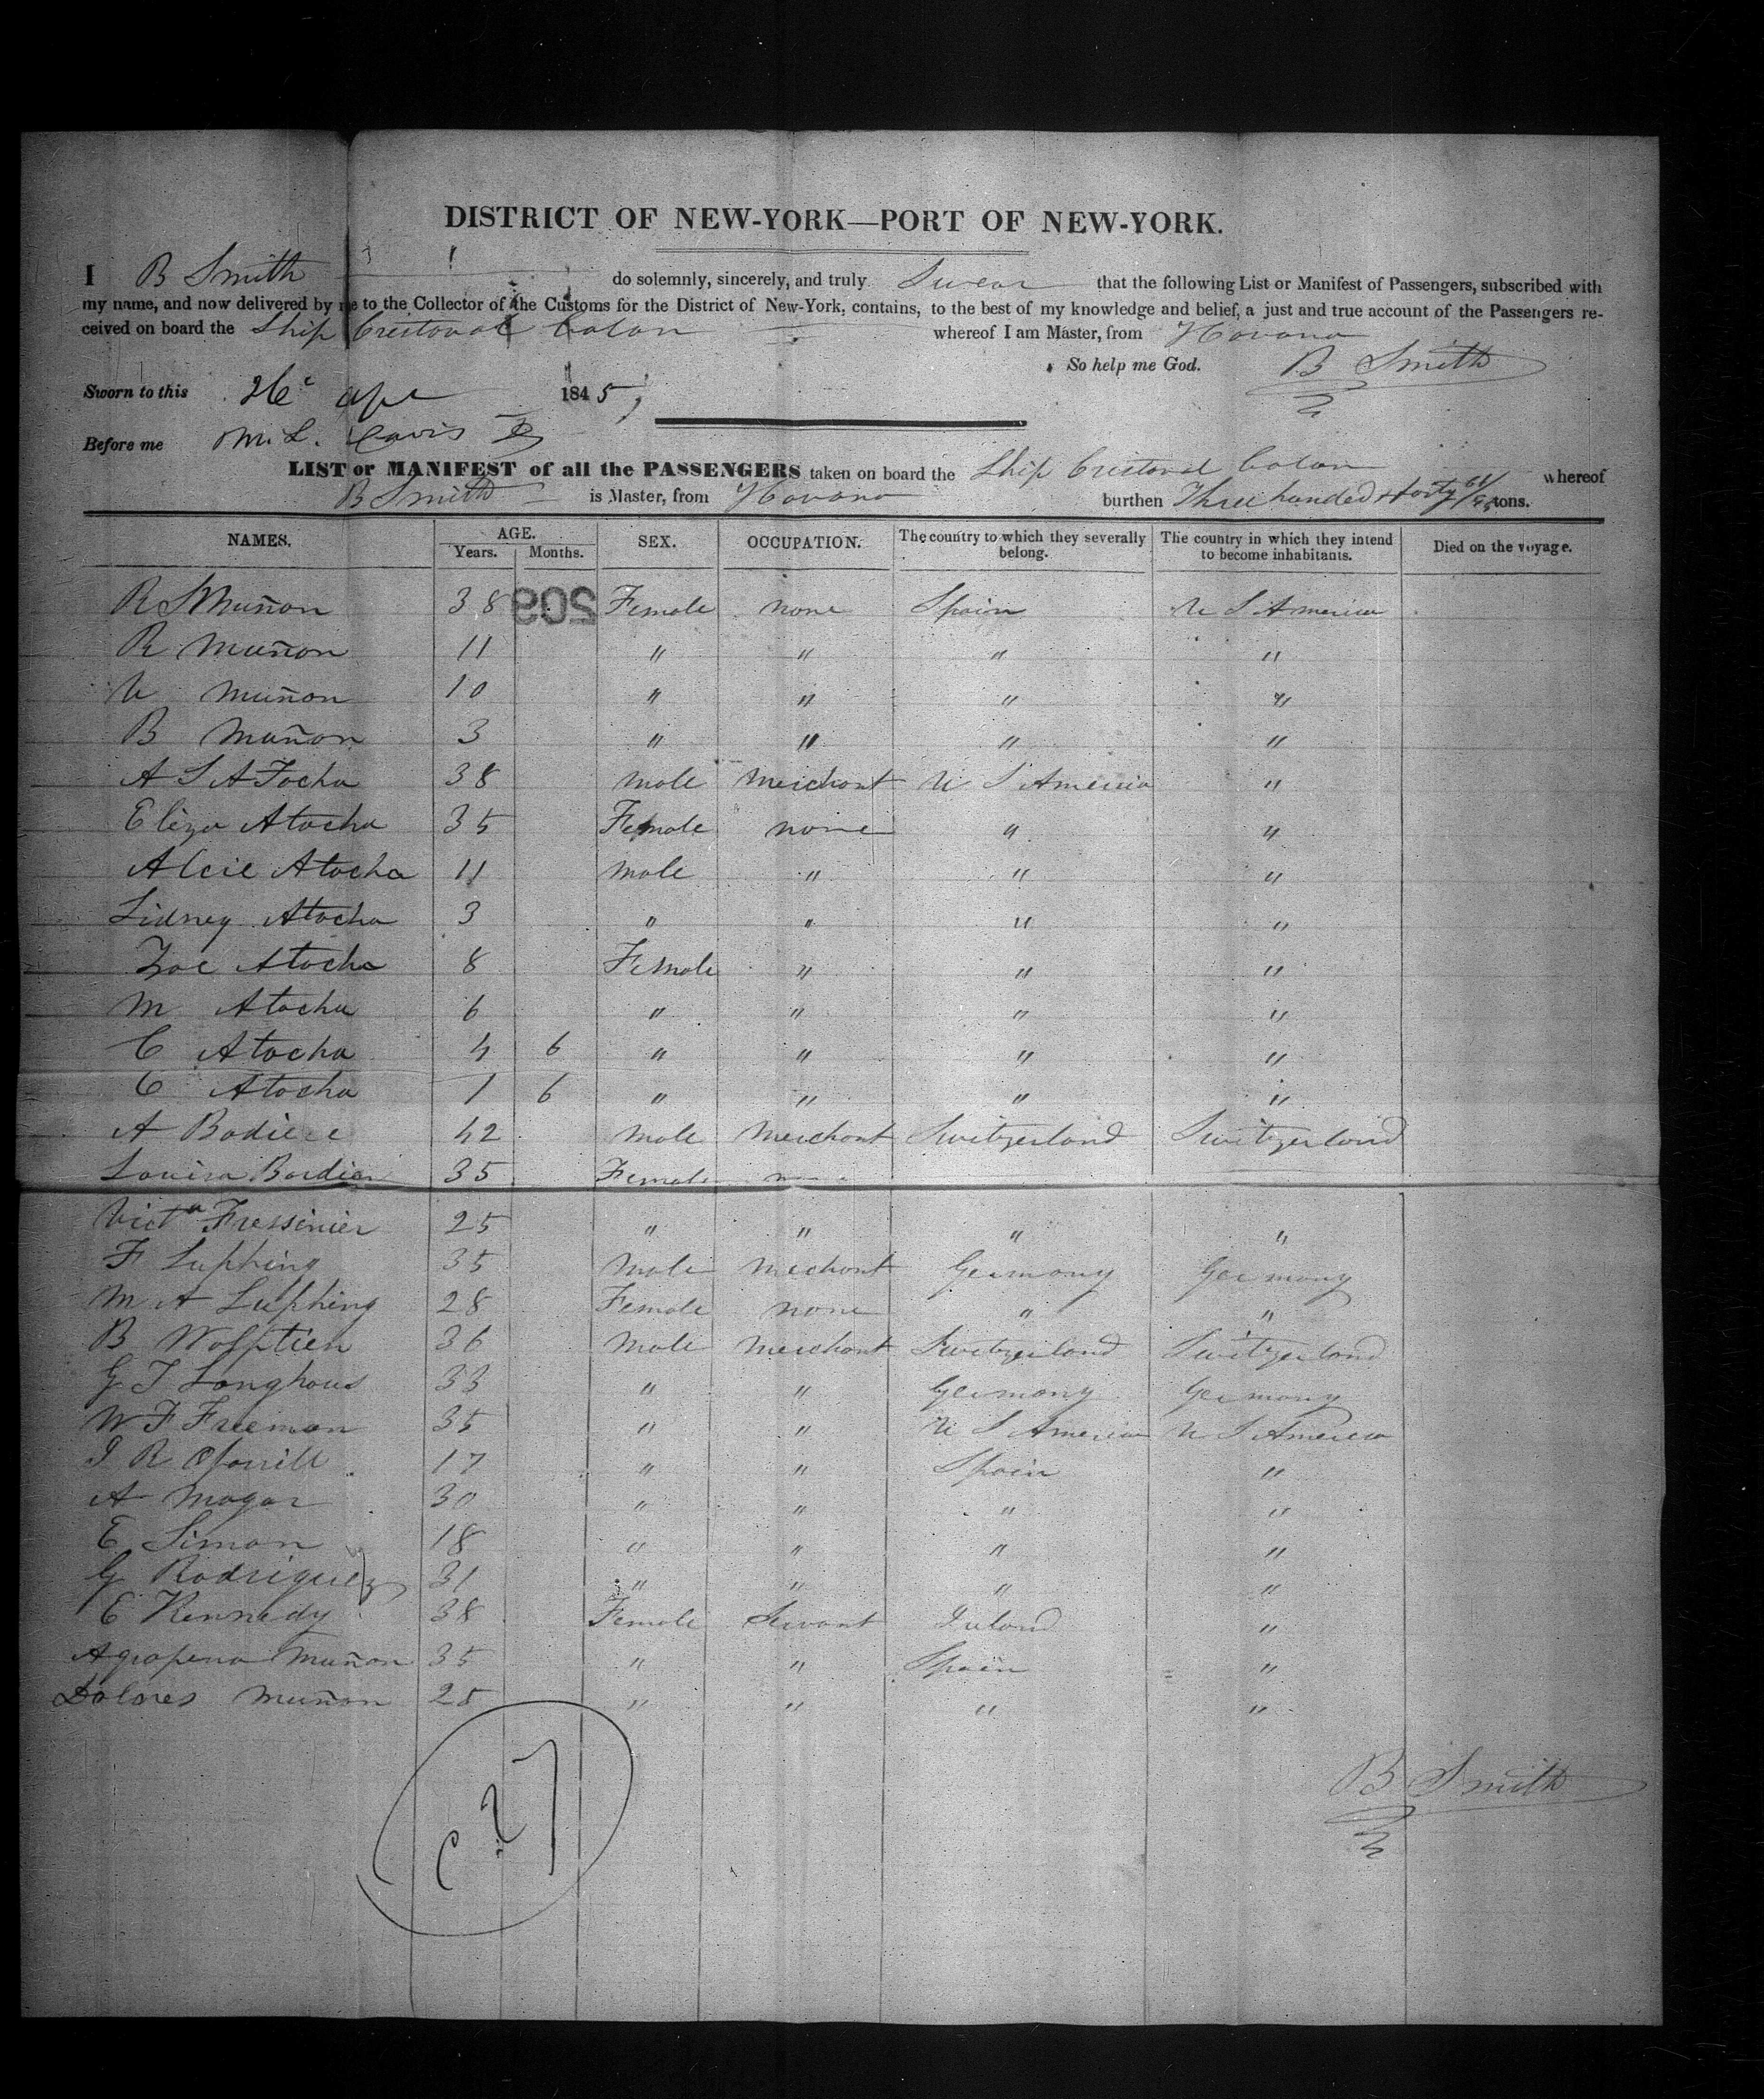 DISTRICT OF NEW-YORK—PORT OF NEW-YORK.
I B Smith do solemnly, sincerely, and truly Swear that the following List or Manifest of Passengers, subscribed with
my name, and now delivered by me to the Collector of the Customs for the District of New-York, contains, to the best of my knowledge and belief, a just and true account of the Passengers re-
ceived on board the Ship Cristoval Colon whereof I am Master, from Havana
So help me God. B Smith
Sworn to this 26 apl 1845,
Before me M. L. Davis
LIST or MANIFEST of all the PASSENGERS taken on board the Ship Cristoval Colon whereof
B Smith is Master, from Havana burthen Three hunded & forty tons.
NAMES. AGE. Years. Months. SEX. OCCUPATION. The country to which they severally belong. The country in which they intend to become inhabitants. Died on the voyage.
209
R S Muñon 38 Female none Spain U S America
R Muñon 11 " " " "
U Muñon 10 " " " "
B Muñon 3 " " " "
A J Atocha 38 male Merchant U S America "
Eliza Atocha 35 Female none " "
Alcie Atocha 11 male " " "
Sidney Atocha 3 " " " "
Zoe Atocha 8 Female " " "
M Atocha 6 " " " "
C Atocha 4 6 " " " "
C Atocha 1 6 " " " "
A Bodiere 42 male Merchant Switzerland Switzerland
Louisa Bordier 35 Female
Vict<sup>a</sup> Fressinier 25 " " " "
F Lupping 35 Male Mechant Germany Germany
M A Lupping 28 Female none " "
B Wolftien 36 Male Merchant Switzerland Switzerland
G T Longhous 33 " " Germany Germany
W F Freeman 35 " " U S America U S America
J R Ofarrill 17 " " Spain "
A Magar 30 " " " "
E Simon 18 " " " "
G Rodriguez 31 " " " "
E Kennedy 38 Female Servant Ireland "
Agrapena Muñon 35 " " Spain "
Dolores Muñon 25 " " " "
B Smith
C 27